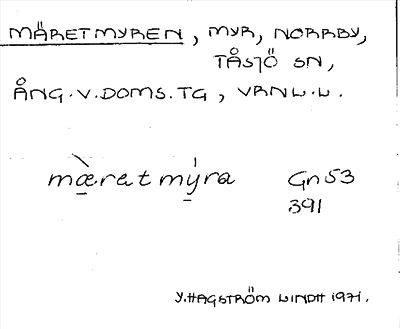 MÄRETMYREN, MYR, NORRBY,
TÅSJÖ SN,
ÅNG.V.DOMS.TG, VRNL.L.
mæ̱̀ret mý̱ra Gn 53
391
Y.HAGSTRÖM LINDH 1971.